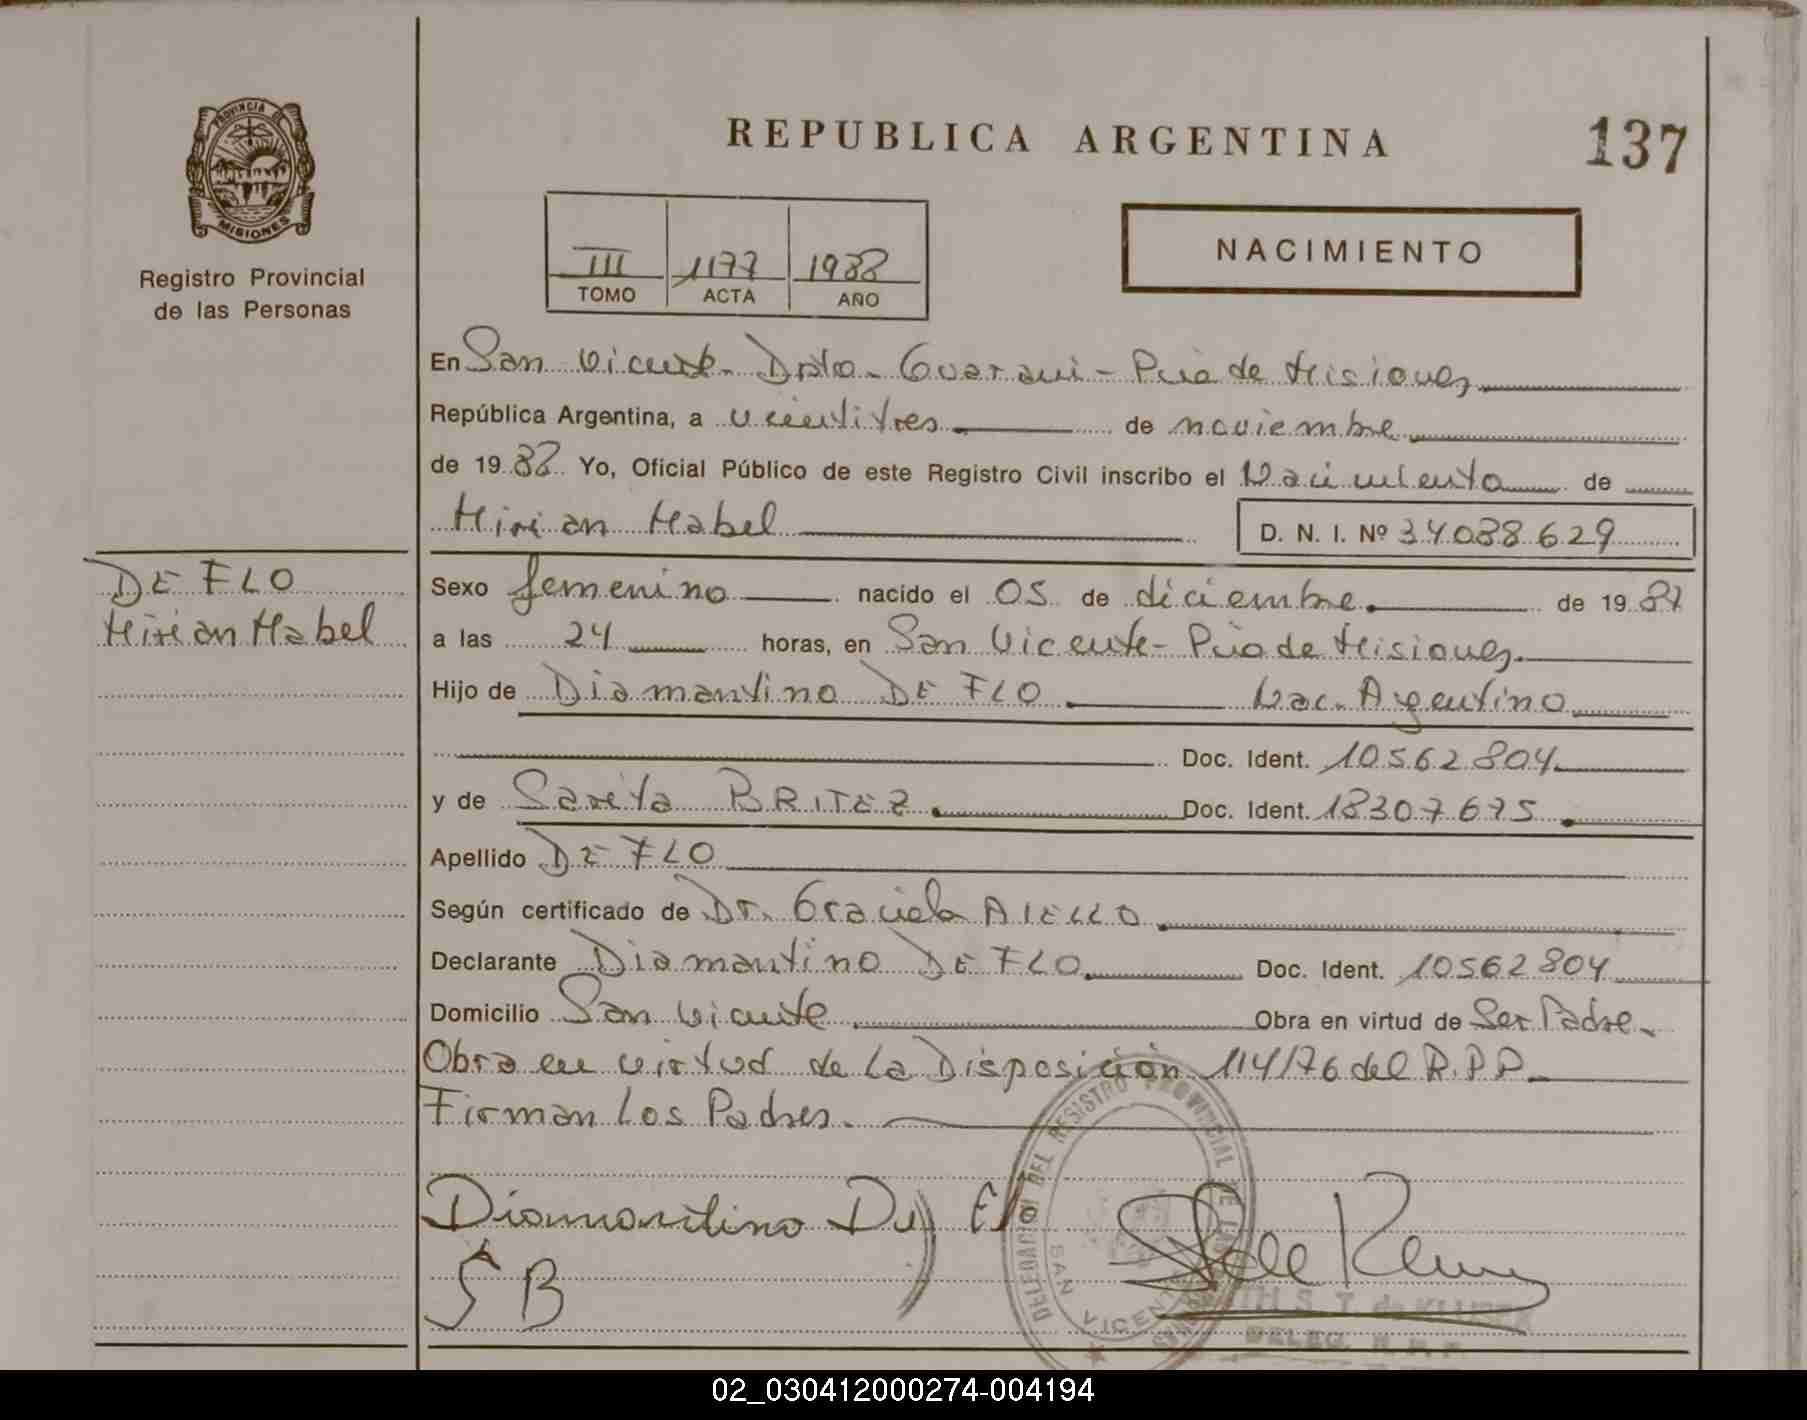 PROVINCIA DE
MISIONES
Registro Provincial
de las Personas
REPUBLICA ARGENTINA
137
III 1177 1988
TOMO ACTA AÑO
NACIMIENTO
En San Vicente - Dpto. Guarani - Pcia de Misiones
República Argentina, a veintitres de noviembre
de 1988 Yo, Oficial Público de este Registro Civil inscribo el Nacimiento de
Mirian Mabel D. N. I. Nº 34088629
DE FLO
Mirian Mabel
Sexo femenino nacido el 05 de diciembre de 1987
a las 24 horas, en San Vicente - Pcia de Misiones.
Hijo de Diamantino DE FLO Nac. Argentino
Doc. Ident. 10562804
y de Sarita BRITEZ. Doc. Ident. 18307675.
Apellido DE FLO
Según certificado de Dr. Graciela AIELLO.
Declarante Diamantino DE FLO Doc. Ident. 10562804
Domicilio San Vicente. Obra en virtud de Ser Padre.
Obra en virtud de La Disposición 114/76 del R.P.P.
Firman Los Padres.
DELEGACION DEL REGISTRO PROVINCIAL DE LAS
SAN VICENTE
Diamantino De Fl
S B
S. T. de KLUER
DELEG. R. P. P.
02_030412000274-004194